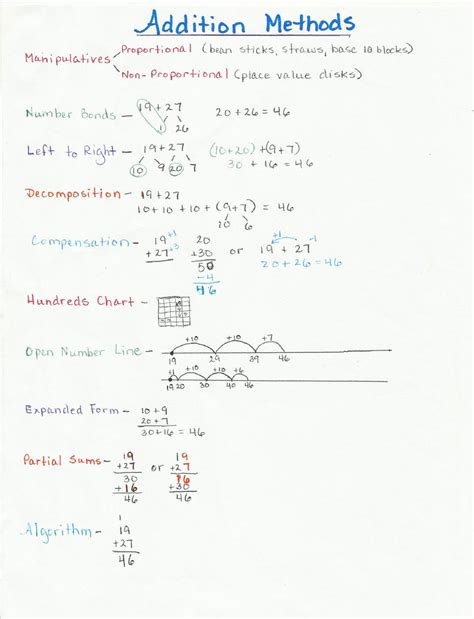 Addition Methods
Manipulatives Proportional (bean sticks, straws, base 10 blocks)
Non-Proportional (place value disks)
Number Bonds - 19+27 20+26=46
1 26
Left to Right - 19+27 (10+20)+(9+7)
10 9 20 7 30 + 16 = 46
Decomposition - 19+27
10+10+10+(9+7)=46
10 6
Compensation - 19 +1 20 or +1 19 + 27 -1
+27 +3 +30 20+26=46
50
-4
46
Hundreds Chart -
Open Number Line - +10 +10 +7
19 29 39 46
+1 +10 +10 +6
19 20 30 40 46
Expanded Form - 10+9
20+7
30+16=46
Partial Sums - 19 or 19
+27 +27
30 16
+16 +30
46 46
Algorithm - 1
19
+27
46